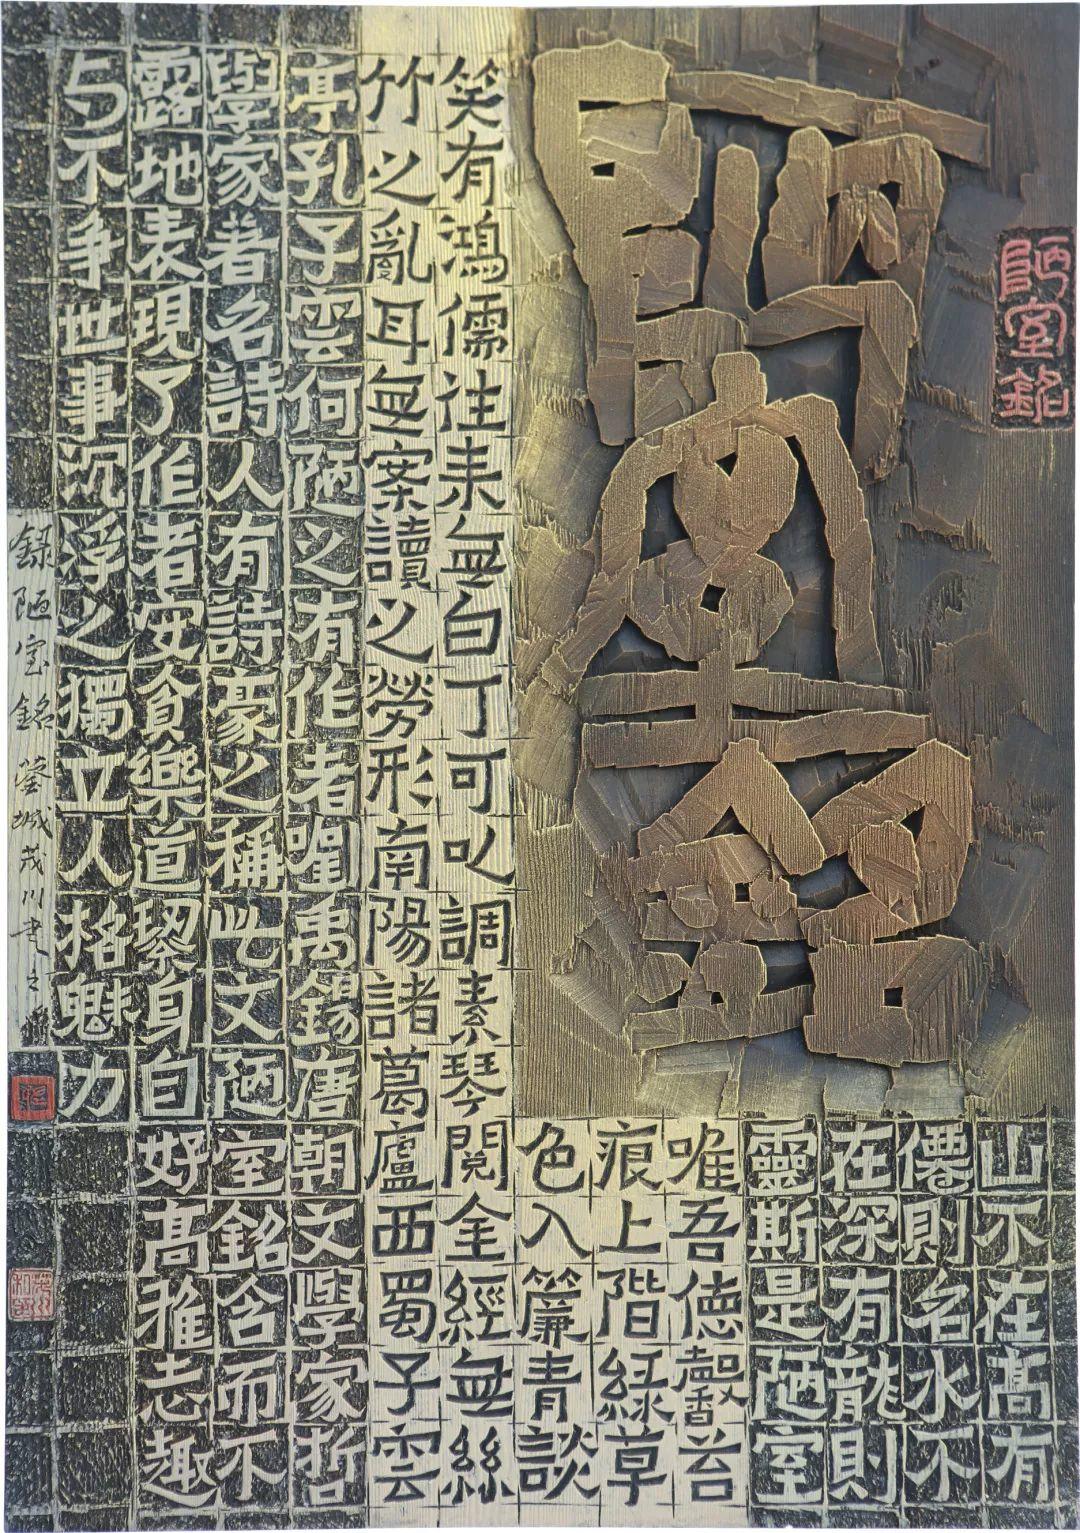 陋室銘
陋室銘
山不在高有
僊則名水不
在深有龍則
靈斯是陋室
唯吾德馨苔
痕上階緑草
色入簾青談
笑有鴻儒往来無白丁可以調素琴閱金經無絲
竹之亂耳無案讀之勞形南陽諸葛廬西蜀子雲
亭孔子雲何陋之有作者劉禹錫唐朝文學家哲
學家著名詩人有詩豪之稱此文陋室銘含而不
露地表現了作者安貧樂道潔身自好高雅志趣
与不争世事沉浮之獨立人格魅力
録陋室銘 蓉城茂川書之